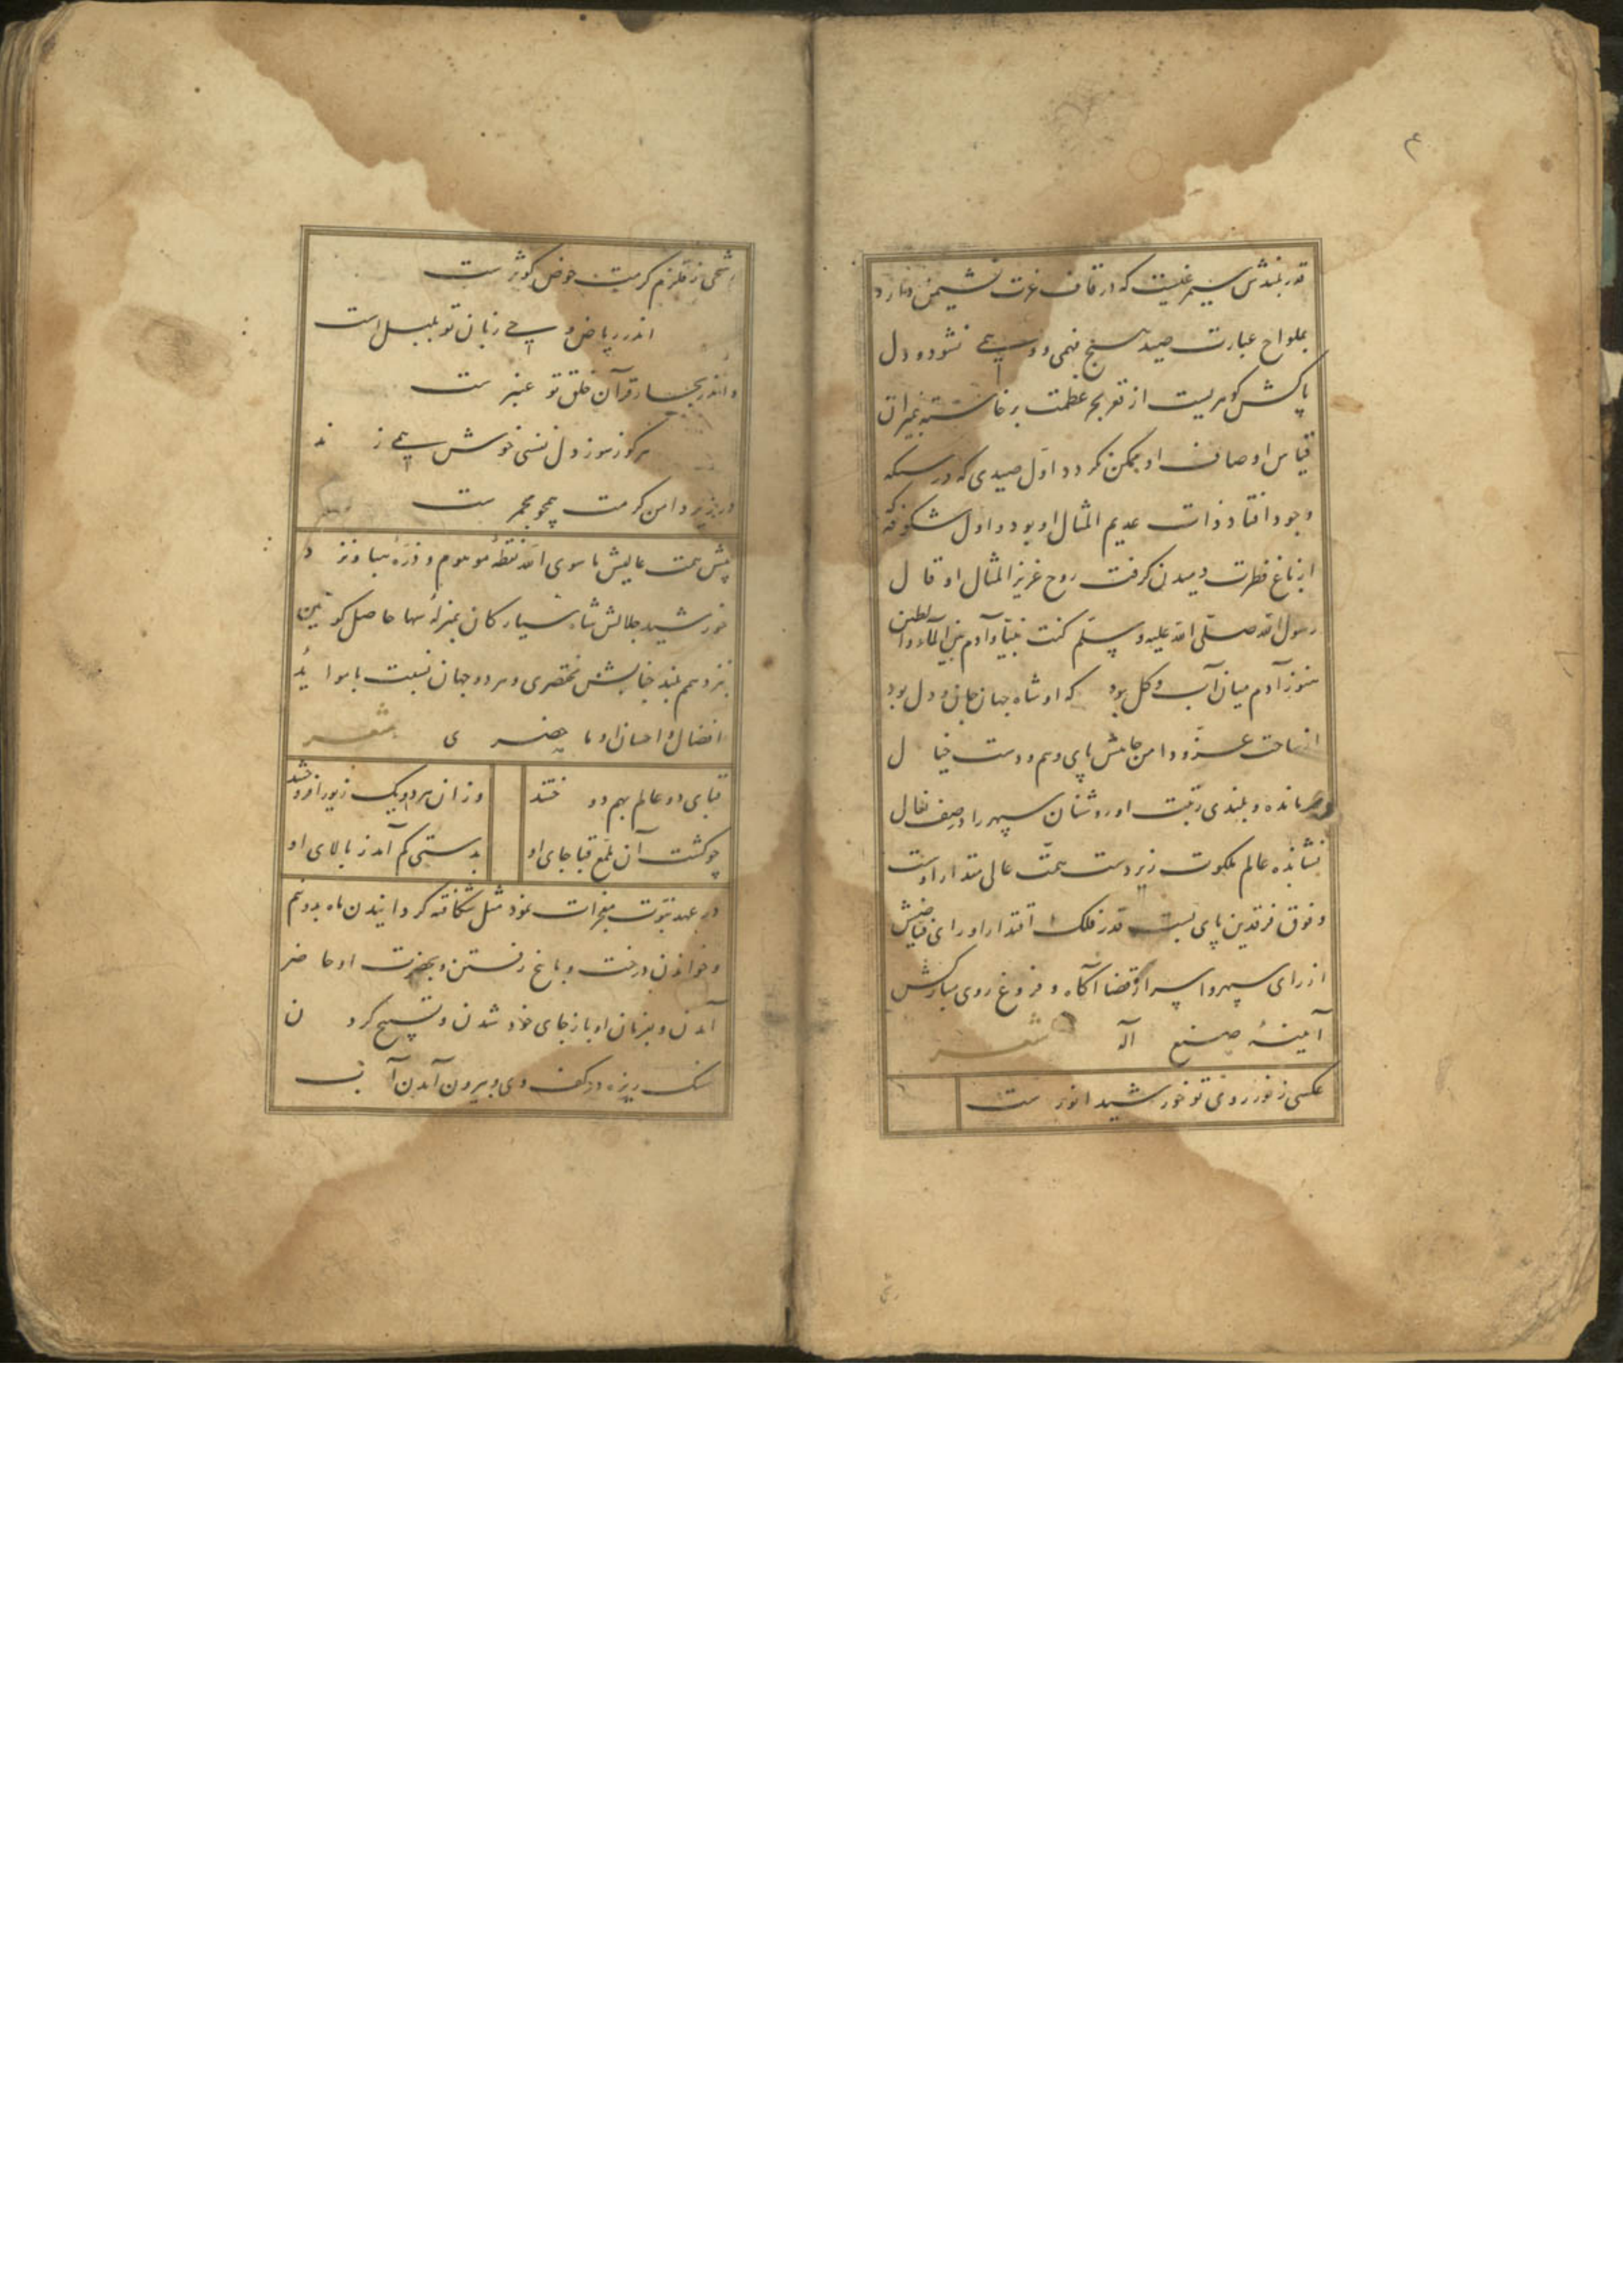 ۴
قدر بلندش سیمرغیست که در قاف عزت نشیمن دارد
بملواح عبارت صید هیچ فهمی و وهمی نشود و دل
پاکش گوهریست از قعر بحر عظمت برخاسته بمیزان
قیاس اوصاف او ممکن نکردد اول صیدی که در شبکه
وجود افتاد ذات عدیم المثال او بود و اول شکوفه که
از باغ فطرت دمیدن گرفت روح عزیز المثال او قال
رسول الله صلّی الله علیه و سلّم کنت نبیّا و آدم بین المآء و الطین
هنوز آدم میان آب و کل بود که او شاه جهان جان و دل بود
از ساحت عزّ و دامن جاهش پای وهم و دست خیال
مانده و بلندی رتبت او روشنان سپهر را در صف نعال
نشانده عالم ملکوت زیر دست همّت عالی مقدار اوست
و فوق فرقدین پای بست قدر فلک اقتدار او رای فیاضش
از رای سپهر و اسرار قضا آگاه و فروغ روی مبارکش
آیینهٔ صنع اله شعر
عکسی ز نور روی تو خورشید انور ست
رشحی ز قلزم کرمت حوض کوثر ست
اندر ریاض وحی زبان تو بلبل است
و اندر بحار قرآن خلق تو عنبر ست
هر کو ز سوز دل نفسی خوش همی زند
در زیر دامن کرمت همچو مجمر ست
پیش همت عالیش ما سوی الله نقطهٔ موهوم و ذرهٔ هبا و نزد
خورشید جلالش شاه سیارکان بمنزلهٔ سها حاصل کونین
بنزد همم بلند جنابش مختصری و هر دو جهان نسبت با موائد
افضال و احسان او ما حضری شعر
قبای دو عالم بهم دوختند وزان هر دو یک زیور افروختند
چو کشت آن ملمع قبا جای او بدستی کم آمد ز بالای او
در عهد نبوّت معجزات نمود مثل شکافته کردانیدن ماه بدو نیم
و خواندن درخت و باغ رفتن و بحضرت او حاضر
آمدن و بفرمان او باز جای خود شدن و تسبیح کردن
سنک ریزه در کف وی و بیرون آمدن آب